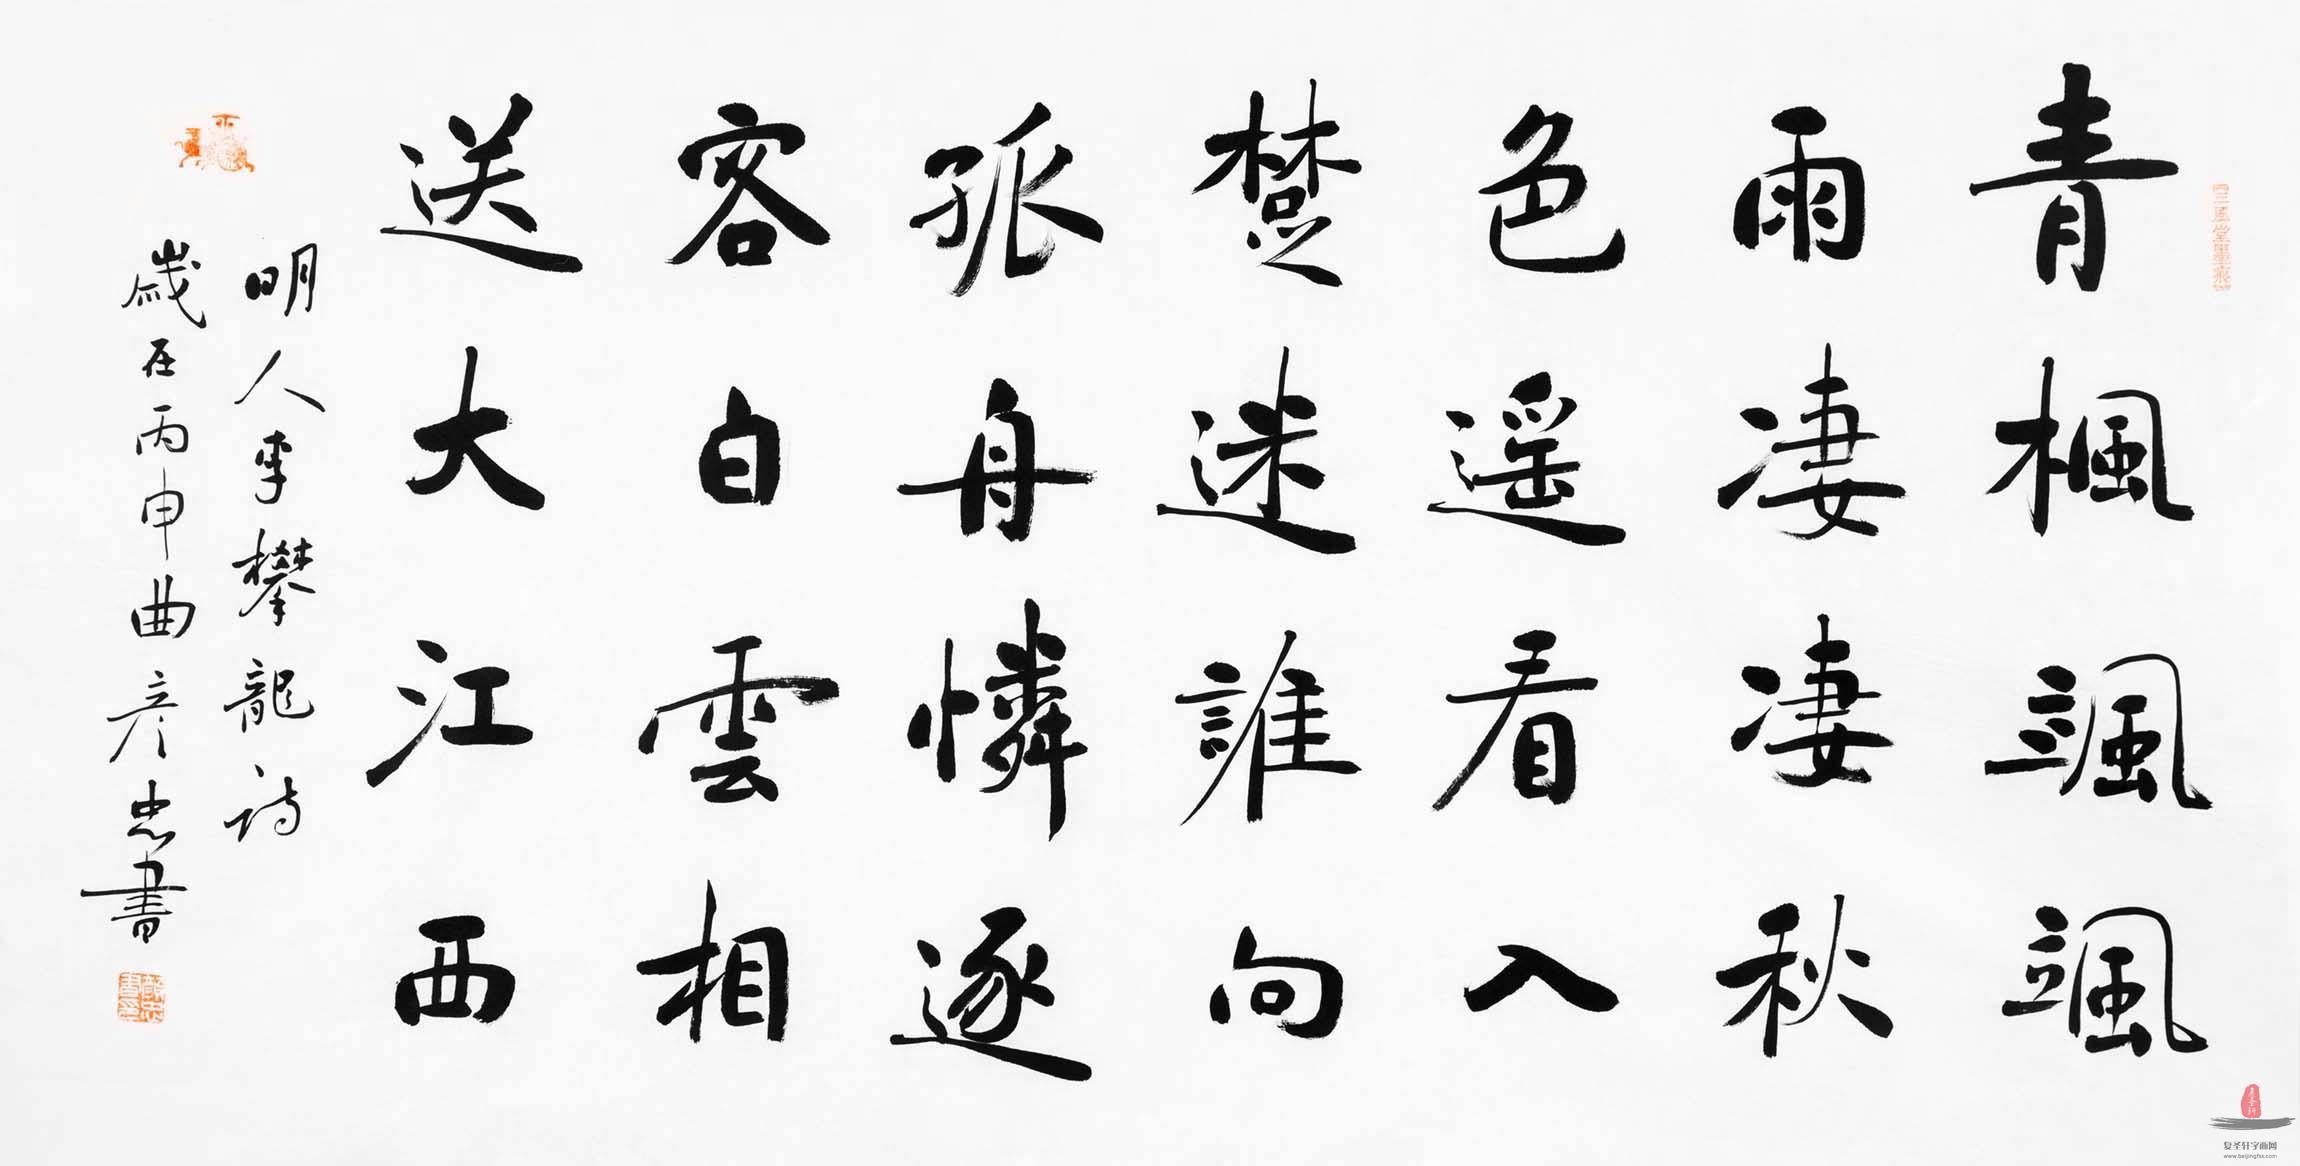 青楓颯颯
雨淒淒秋
色遥看入
楚迷誰向
孤舟憐逐
客白雲相
送大江西
明人李攀龍詩
歲在丙申曲彦忠書
复圣轩字画网
www.beijingfsx.com